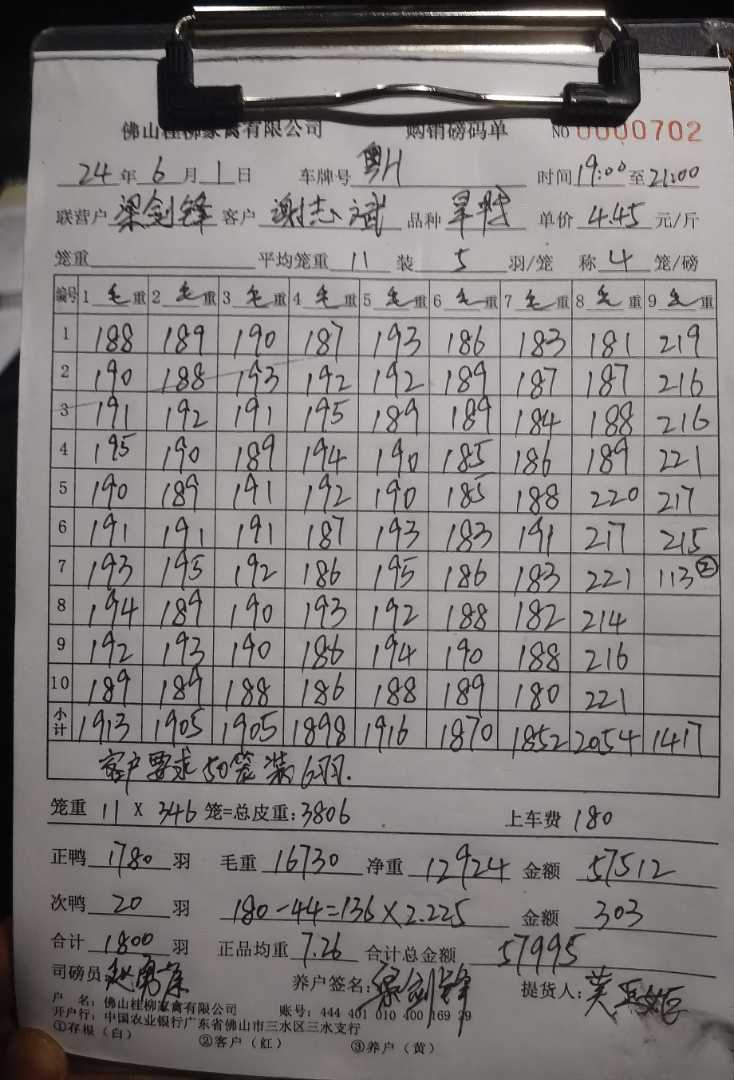 佛山桂柳家禽有限公司 购销磅码单 NO 0000702
24 年 6 月 1 日 车牌号 粤H 时间 19:00 至 21:00
联营户 梁剑锋 客户 谢志斌 品种 单价 4.45 元/斤
笼重 平均笼重 11 装 5 羽/笼 称 4 笼/磅
编号 1 毛 重 2 毛 重 3 毛 重 4 毛 重 5 毛 重 6 毛 重 7 毛 重 8 毛 重 9 毛 重
1 188 189 190 187 193 186 183 181 219
2 190 188 193 192 192 189 187 187 216
3 191 192 191 195 189 189 184 188 216
4 195 190 189 194 190 185 186 189 221
5 190 189 191 192 190 185 188 220 217
6 191 191 191 187 193 183 191 217 215
7 193 195 192 186 195 186 183 221 113 ②
8 194 189 190 193 192 188 182 214
9 192 193 190 186 194 190 188 216
10 189 189 188 186 188 189 180 221
小计 1913 1905 1905 1898 1916 1870 1852 2054 1417
客户要求50笼装6羽.
笼重 11 X 346 笼=总皮重: 3806 上车费 180
正鸭 1780 羽 毛重 16730 净重 12924 金额 57512
次鸭 20 羽 180-44=136×2.225 金额 303
合计 1800 羽 正品均重 7.26 合计总金额 57995
司磅员 养户签名: 梁剑锋 提货人:
户 名: 佛山桂柳家禽有限公司 账号: 444 401 010 400 169 29
开户行: 中国农业银行广东省佛山市三水区三水支行
①存根（白） ②客户（红） ③养户（黄）